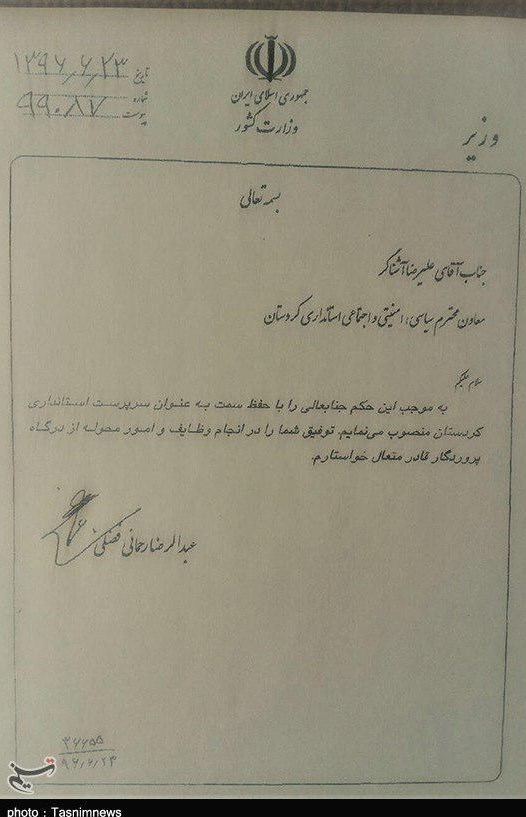 جمهوری اسلامی ایران
وزارت کشور
وزیر
تاریخ ۱۳۹۶٫۶٫۲۳
شماره ۹۹۰۸۷
پیوست
بسمه تعالی
جناب آقای علیرضا آشناگر
معاون محترم سیاسی، امنیتی و اجتماعی استانداری کردستان
سلام علیکم
به موجب این حکم جنابعالی را با حفظ سمت به عنوان سرپرست استانداری
کردستان منصوب می‌نمایم. توفیق شما را در انجام وظایف و امور محوله از درگاه
پروردگار قادر متعال خواستارم.
عبدالرضا رحمانی فضلی
۹۶٫۶٫۲۳
تسنیم
photo : Tasnimnews